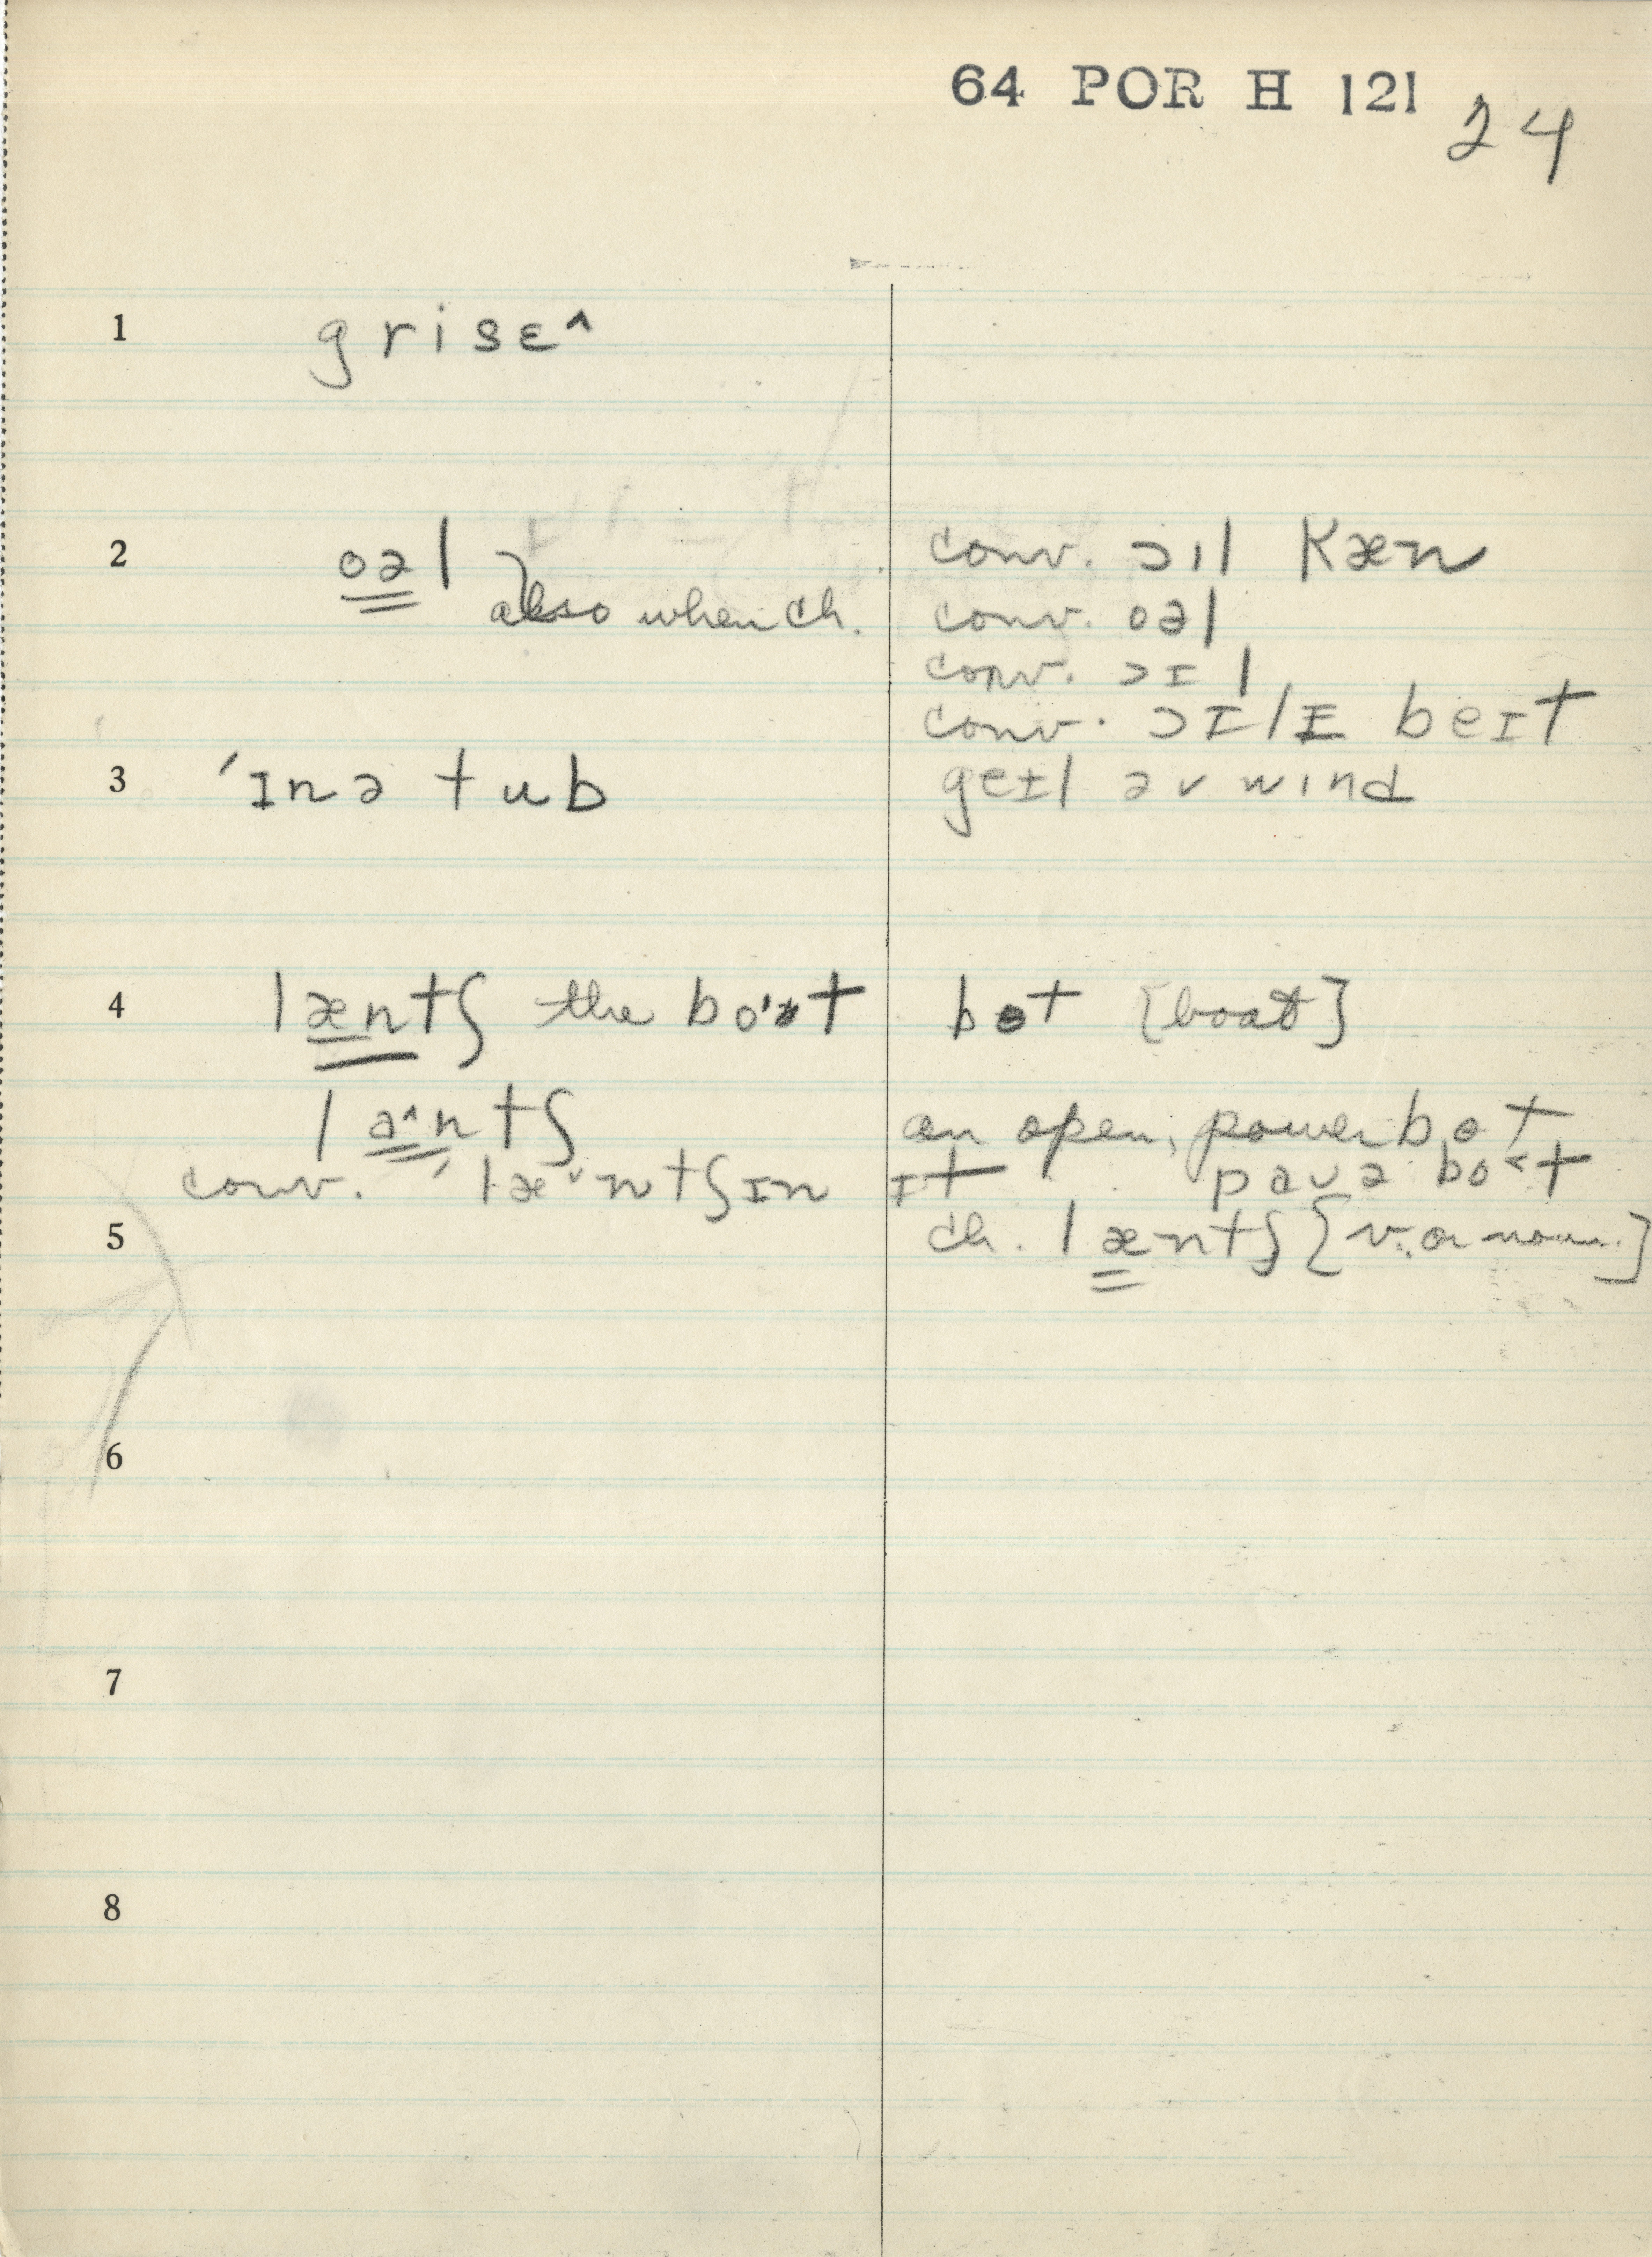 64 POR H 121
24
1 grisɛ^
2 oəl also when ch. conv. ɔɪl Kæn
conv. oəl
conv. ɔɪl
conv. ɔɪlɪ beɪt
3 ˈɪn ə tub geɪl əv wind
4 læntʃ the bot bɵt [boat]
la^ntʃ an open, power bɵt
conv. ˈlæ˅ntʃ ɪn ɪt pauə bo<t
5 ch. læntʃ [v. or noun.]
6
7
8